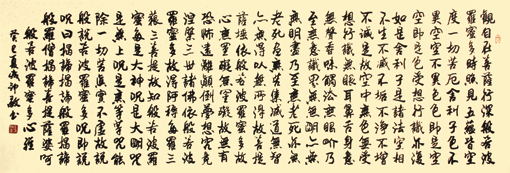 觀自在菩薩行深般若波
羅蜜多時照見五蘊皆空
度一切苦厄舍利子色不
異空空不異色色即是空
空即是色受想行識亦復
如是舍利子是諸法空相
不生不滅不垢不淨不增
不減是故空中無色無受
想行識無眼耳鼻舌身意
無色聲香味觸法無眼界乃
至無意識界無無明亦無
無明盡乃至無老死亦無
老死盡無苦集滅道無智
亦無得以無所得故菩提
薩埵依般若波羅蜜多故
心無罣礙無罣礙故無有
恐怖遠離顛倒夢想究竟
涅槃三世諸佛依般若波
羅蜜多故得阿耨多羅三
藐三菩提故知般若波羅
蜜多是大神咒是大明咒
是無上咒是無等等咒能
除一切苦真實不虛故說
般若波羅蜜多咒即說
咒曰揭諦揭諦波羅揭諦
波羅僧揭諦菩提薩婆呵
般若波羅蜜多心經
癸巳夏